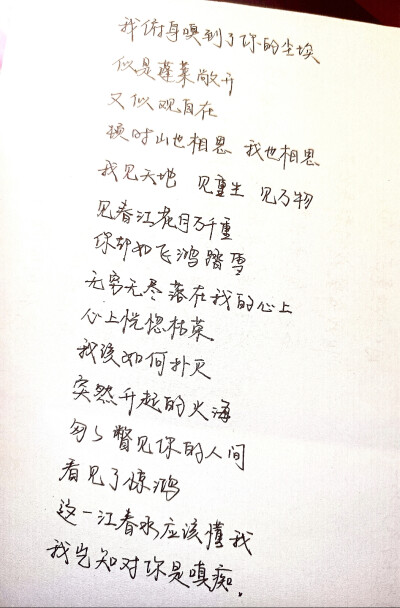 我俯身嗅到了你的尘埃
似是蓬莱敞开
又似观自在
顿时山也相思 我也相思
我见天地 见重生 见万物
见春江花月万千重
你却如飞鸿踏雪
无穷无尽落在我的心上
心上恍惚枯荣
我该如何扑灭
突然升起的火海
匆匆瞥见你的人间
看见了惊鸿
这一江春水应该懂我
我先知对你是嗔痴.